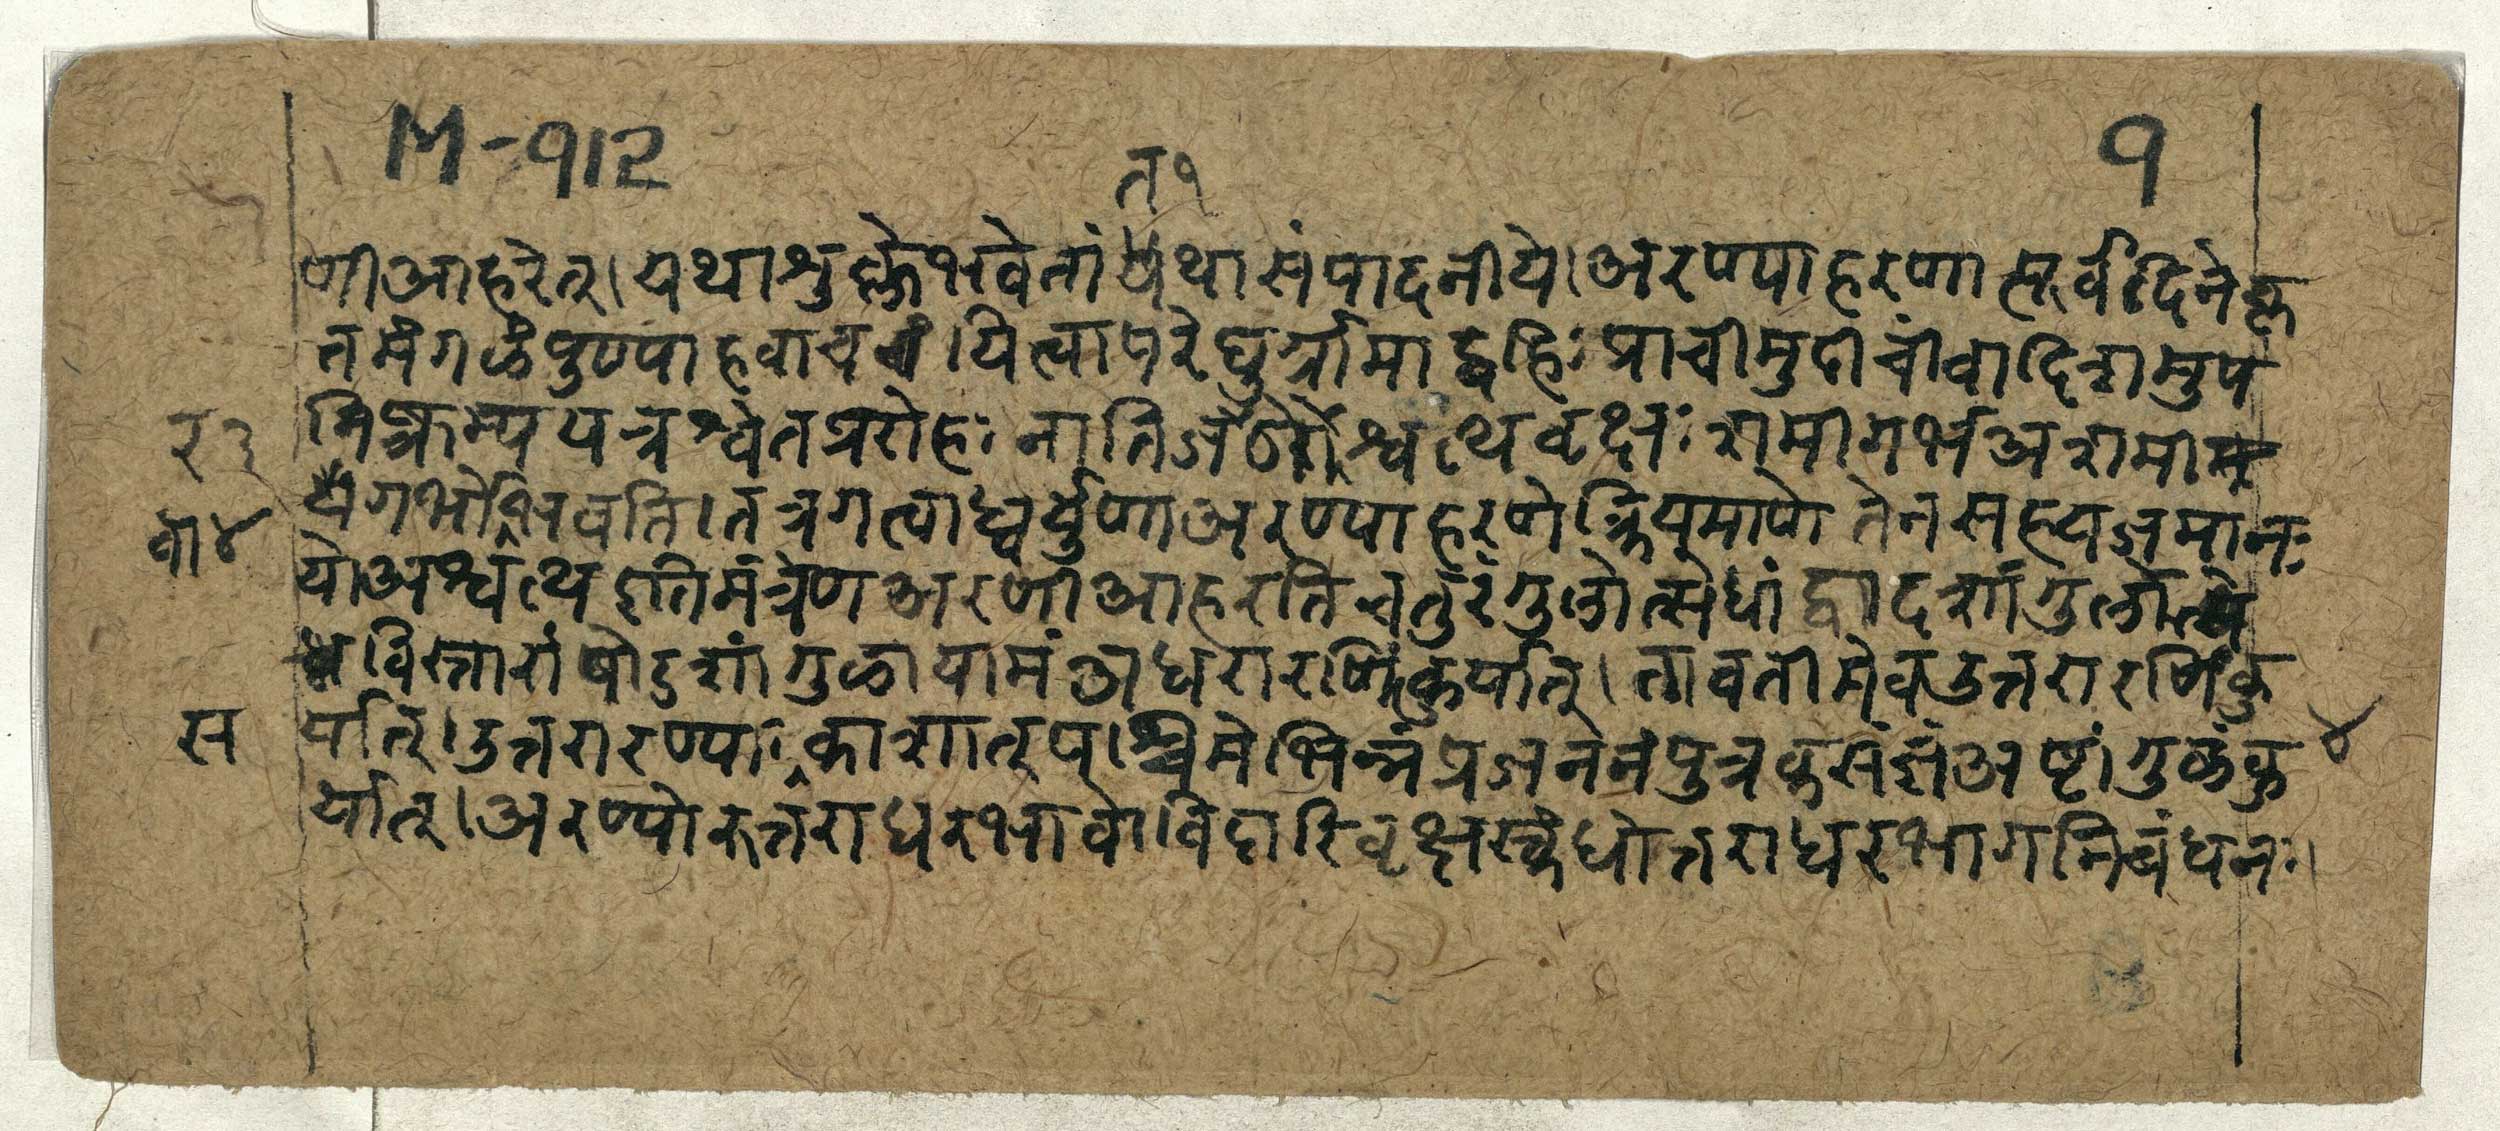 M-912
त१
१
णी आहरेत्। यथाशुष्के भवेतां यथा संपादनीये। अरण्याहरणात्पूर्वदिने कृ
तमंगळपुण्याहवाच यित्वापरेद्युर्ग्रामाद्बहिः प्राचीमुदीचीं वा दिशमुप
निष्क्रम्य यत्र श्वेतप्ररोहः नातिजठरो श्वत्थ वृक्षः शमीगर्भ अशमी
र३
गर्भो भवति। तत्र गत्वाध्वर्युणा अरण्याहरणे क्रियमाणे तेन सह यजमानः
वो४
यो अश्वत्थ इति मंत्रेण अरणी आहरति चतुरंगुलोत्सेधां द्वादशांगुल
विस्तारां षोडशांगुळायामं अधरारणिं कुर्यात्। तावतीमेव उत्तरारणिं कु
स
र्यात्। उत्तरारण्याः काशात् पश्चिमे भिन्नं प्रजननं पुत्रकसंज्ञं अष्टांगुळं कु
४
र्यात्। अरण्योरुत्तराधरभावो विदारिवृक्षस्कंधोत्तराधरभागनिबंधनः।